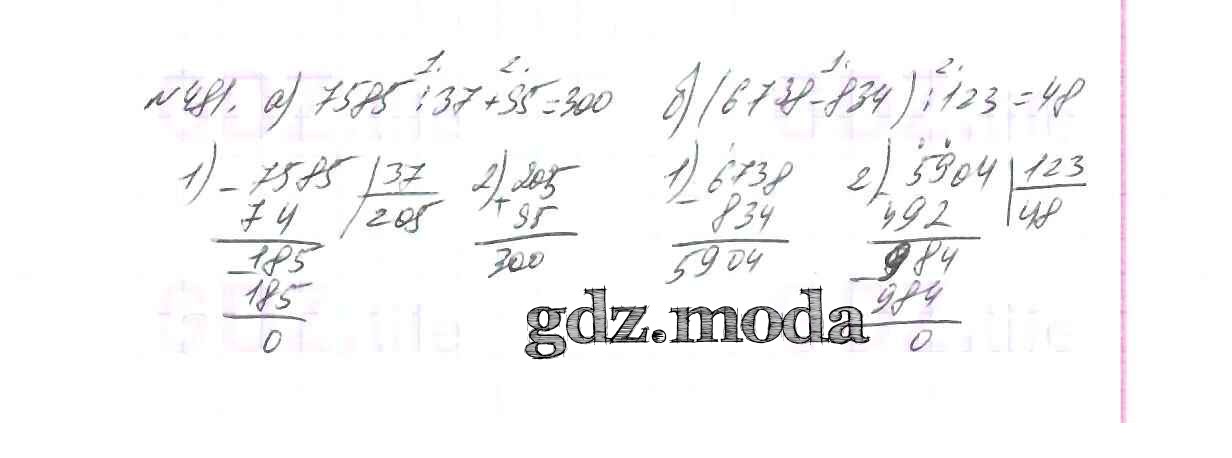 №481. а) 7585 : 37 + 95 = 300   б) (6738 - 834) : 123 = 48
1. 2. 1. 2.
1) - 7585 | 37   2) + 205   1) - 6738   2) - 5904 | 123
74 | 205   95   834   492 | 48
- 185   300   5904   - 984
185   984
0   0
gdz.moda